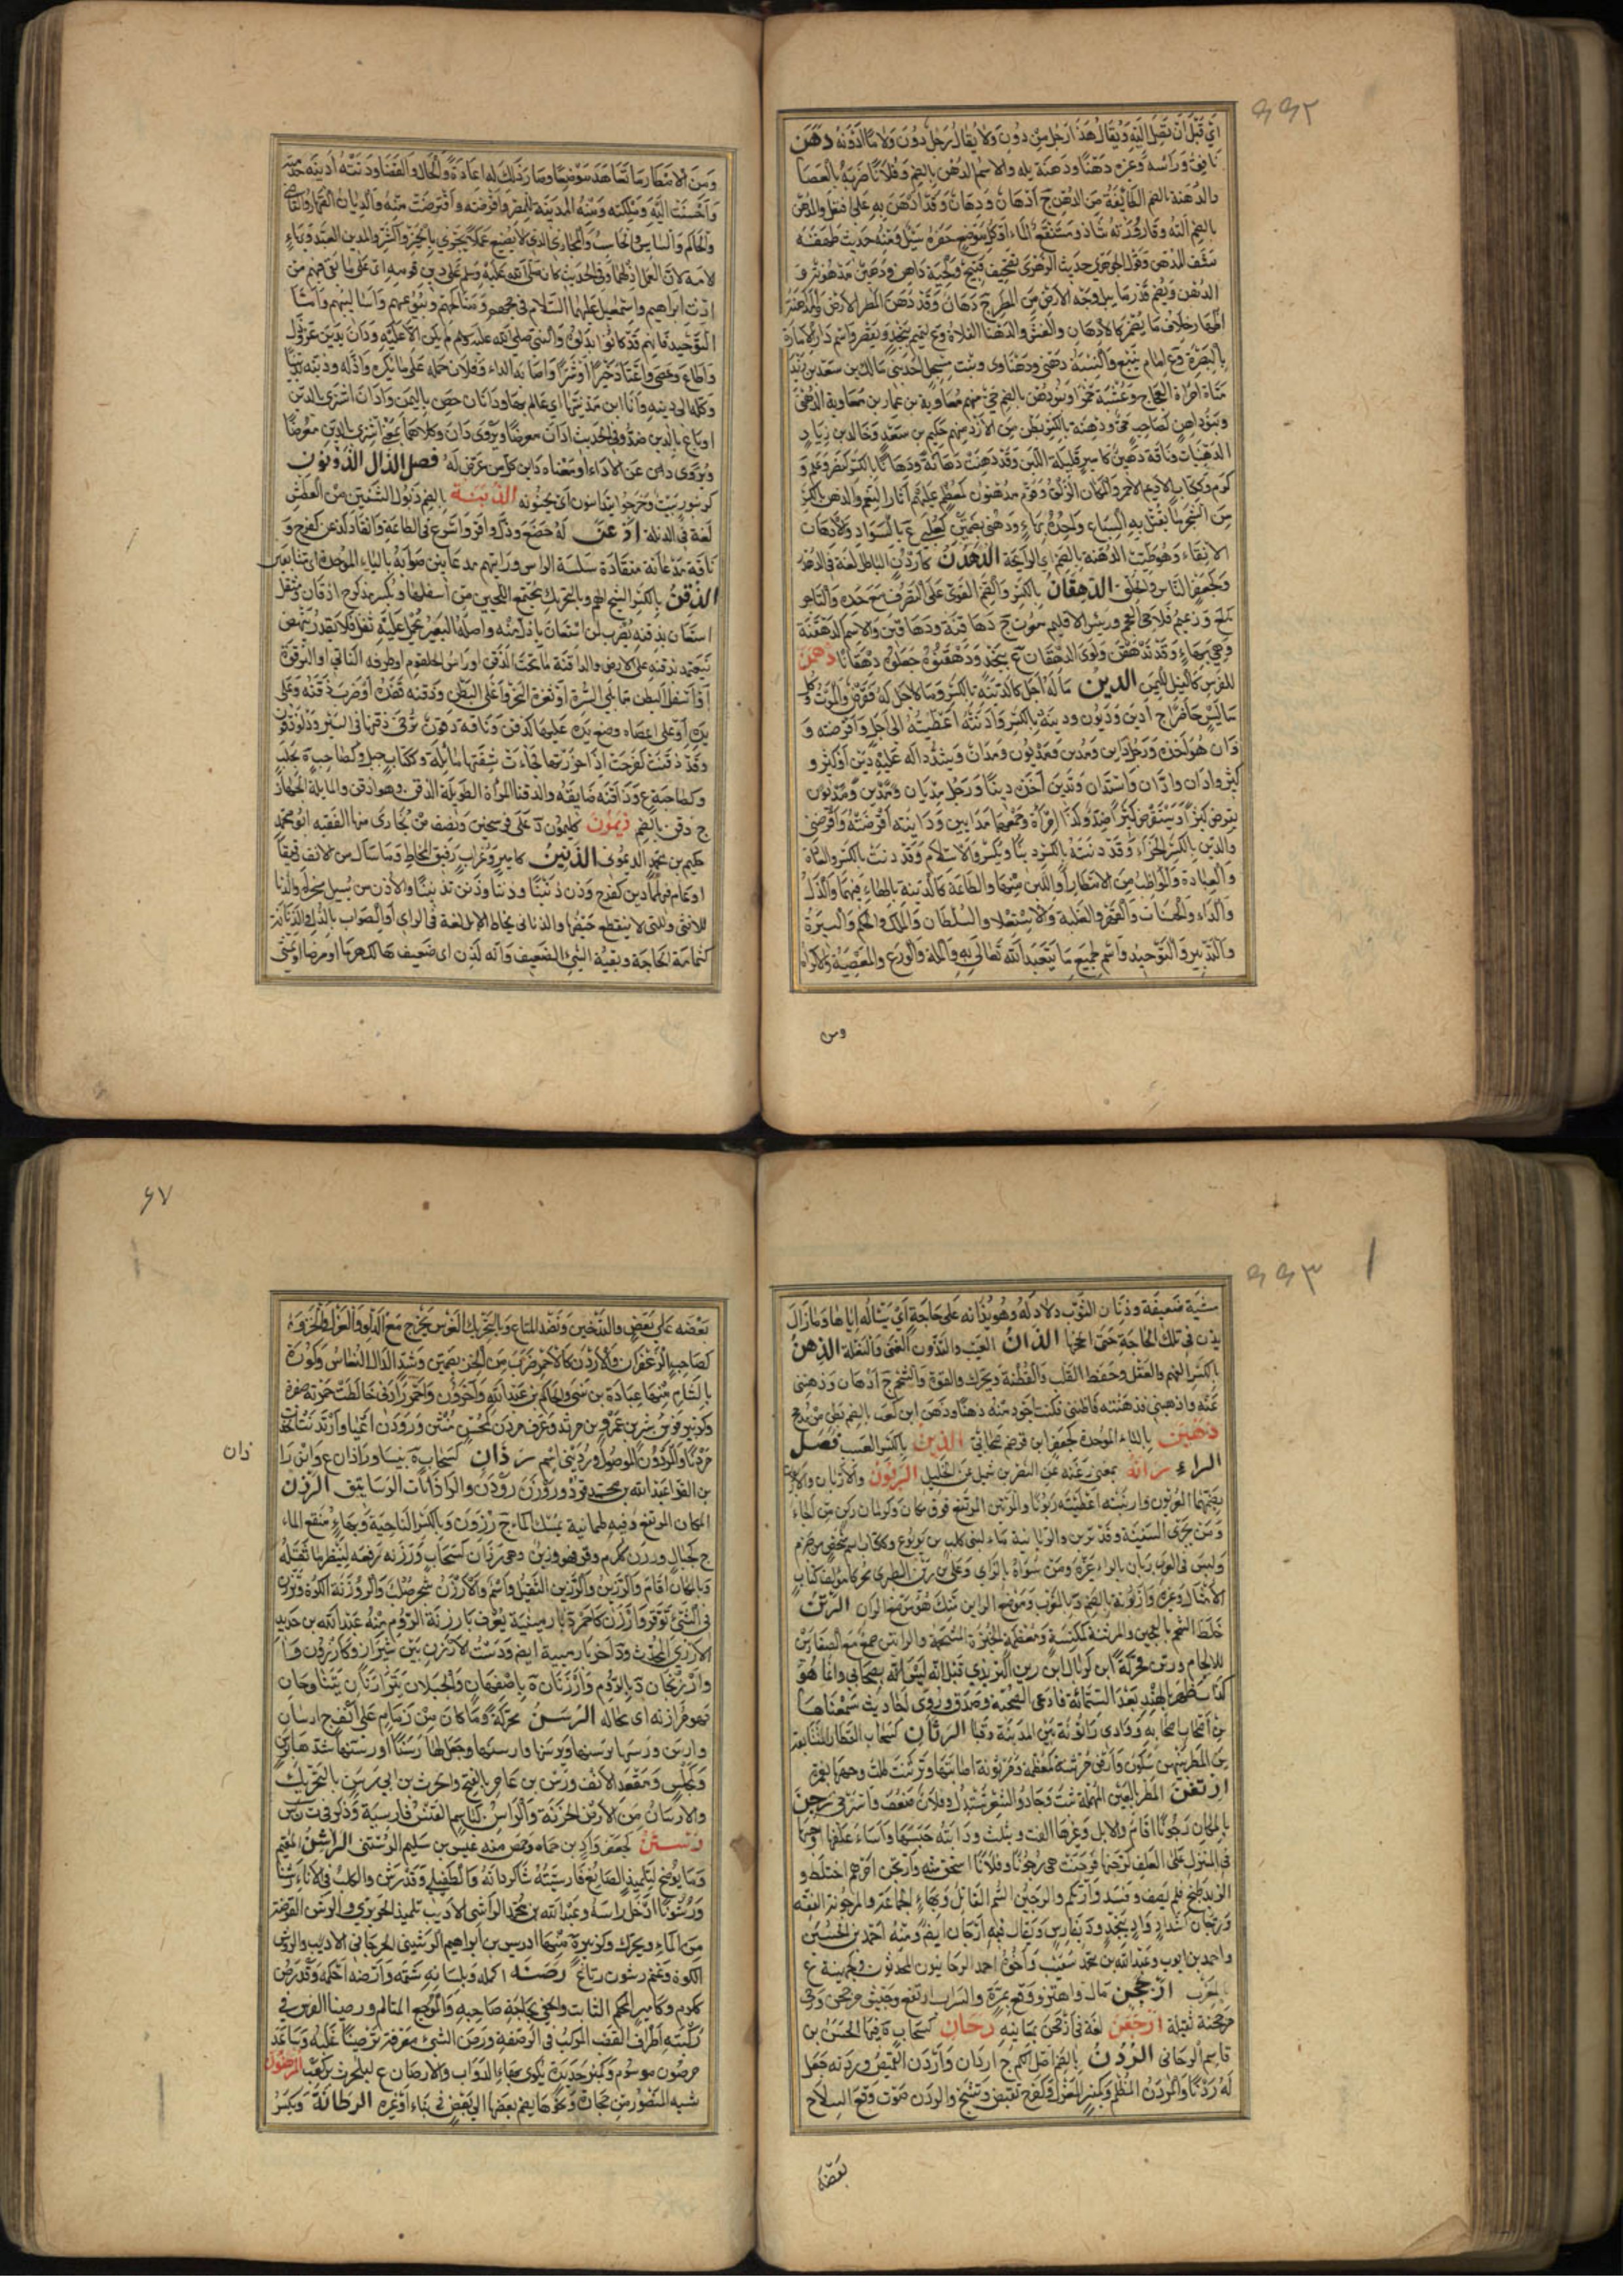 ٩٩٢
اي قبل ان تصل اليه ويقال هذا رجل من دون ولا يقال رجل دون ولا ما ادونه دهن
نافق وراسه وغيره دهنا ودهنة بله والاسم الدهن بالضم وفلانا ضربه بالعصا
والدهنة بالضم الطائفة من الدهن ج ادهان ودهان وقد ادهن به على افتعل والمدهن
بالضم آلته وقارورته شاذ ومستنقع الماء او كل موضع حفره سيل ومنه حديث طهفة
نشف المدهن وقول الجوهري حديث الزهري تصحيف قبيح ولحية داهن ودهين مدهونة و
الدهن ويضم قدر ما يبل وجه الارض من المطر ج دهان وقد دهن المطر الارض والمداهنة
اظهار خلاف ما يضمر كالادهان والغش والدهنا الفلاة وع لتميم بنجد ويقصر واسم دار الامارة
بالبصرة وع امام ينبع والنسبة دهني ودهناوي وبنت مسحل احدى بني مالك بن سعد بن زيد
مناة امراة العجاج وعشبة حمرا وبنو دهن بالضم حي منهم معاوية بن عمار بن معاوية الدهني
وبنو داهن كصاحب حي ودهنة بالكسر بطن من الازد منهم حكيم بن سعد وخالد بن زياد
الدهنيان وناقة دهين كامير قليلة اللبن وقد دهنت دهانة ودهانا بالكسر كنصر وعلم و
كرم وككتاب الاديم الاحمر والمكان الزلق وقوم مدهنون كمعظم عليهم آثار النعيم والدهن بالكسر
من الشجر ما يقتل به السباع واحده بهاء ودهنى بضمتين كعلبى ع بالسواد والادهان
الابقاء وهو طيب الدهنة بالضم اي الرائحة الدهدن كاردن الباطل لغة في الدهدر
وكجعفر الناس والخلق الدهقان بالكسر والضم القوي على التصرف مع حدة والتاجر
وزعيم فلاحي العجم ورئيس الاقليم معرب ج دهاقنة ودهاقين والاسم الدهقنة
وهي بهاء وقد تدهقن ولوى الدهقان ع بنجد ودهقنوه جعلوه دهقانا دهمن
للفرس كالقيل لليمن الدين ما له اجل كالدينة بالكسر وما لا اجل له فقرض والموت وكل
ما ليس حاضرا ج ادين وديون ودينة بالكسر وادنته اعطيته الى اجل واقرضته و
دان هو اخذه ورجل داين ومدين ومديون ومدان وتشدد داله عليه دين او كثر و
كثير وادان وادان واستدان وتدين اخذ دينا ورجل مديان
يقرض كثيرا ويستقرض كثيرا ضد وكذا امراة وجمعهما مدايين وداينته اقرضته واقرضني
والدين بالكسر الجزاء وقد دنته بالكسر دينا ويكسر والاسلام وقد دنت بالكسر والعادة
والعبادة والمواظب من الامطار او اللين منها والطاعة كالدينة بالهاء فيهما والذل
والداء والحساب والقهر والغلبة والاستعلاء والسلطان والملك والحكم والسيرة
والتدبير والتوحيد واسم لجميع ما يتعبد الله تعالى به والملة والورع والمعصية والاكراه
ومن
ومن الامطار ما تعاهد موضعا وصار ذلك له عادة والحال والقضا ودنته ادينه خدمته
واحسنت اليه وملكته ومنه المدينة للمصر واقرضته واقترضت منه والديان القهار والقاضي
والحاكم والسايس والحاسب والمجازي الذي لا يضيع عملا بل يجزي بالخير والشر والمدين العبد وبهاء
الامة لان العمل اذلهما وفي الحديث كان صلى الله عليه وسلم على دين قومه اي على ما بقي فيهم من
ارث ابراهيم واسمعيل عليهما السلام في حجهم ومناكحتهم وبيوعهم واساليبهم واما
التوحيد فانهم قد كانوا بدلوه والنبي صلى الله عليه وسلم لم يكن الا عليه ودان يدين عز وذل
واطاع وعصى واعتاد خيرا او شرا واصابه الداء وفلانا حمله على ما يكره واذله ودينه تديينا
وكله الى دينه وانا ابن مدينتها اي عالم بها ودايان حصن باليمن وادان اشترى بالدين
او باع بالدين ضد وفي الحديث ادان معرضا ويروى دان وكلاهما بمعنى اشترى بالدين معرضا
ويروى داين عن الاداء او معناه داين كل من عرض له فصل الذال الذؤنون
كزنبور نبت وخرجوا يتذأننون اي يجتنونه الذبنة بالضم ذبول الشفتين من العطش
لغة في الذبلة اذعن له خضع وذل واقر واسرع في الطاعة وانقاد كذعن كفرح و
ناقة مذعانة منقادة سلسة الراس ورايتهم مذعانين صوابه بالياء الموحدة اي متتابعين
الذقن بالكسر الشيخ الهم وبالتحريك مجتمع اللحيين من اسفلهما ويكسر مذكر ج اذقان ومثقل
استعان بذقنه يضرب لمن استعان باذل منه واصله البعير يحمل عليه ثقل فلا يقدر ينهض
فيعتمد بذقنه على الارض والذاقنة ما تحت الذقن او راس الحلقوم او طرفه الناتئ او الترقوة
او اسفل البطن مما يلي السرة او ثغرة النحر واعلى البطن وذقنه قفده او ضرب ذقنه وعلى
يده او على عصاه وضع ذقنه عليها كذقن وناقة ذقون ترخي ذقنها في السير ودلو ذقون
وقد ذقنت كفرحت اذا خرزتها فجاءت شفتها مائلة وككتاب جبل وكصاحبة ع بحلب
وكصاحبة ع وذاقنه ضايقه والذقناء المراة الطويلة الذقن وهو اذقن والمايلة الجهاز
ج ذقن بالضم ذيمون كليمون ة على فرسخين ونصف من بخارى منها الفقيه ابو محمد
حكيم بن محمد الذيموني الذنين كامير وغراب رقيق المخاط وما سال من الانف رقيقا
او عام فيهما ذن كفرح وذن ذنينا وذننا وذنن تذنينا والاذن من يسيل منخراه والذنا
للانثى والتي لا ينقطع حيضها والذناني مخاط الابل لغة في الراي او الصواب بالذال والذنانة
كثمامة الحاجة وبقية الشيئ الضعيف وانه لذن اي ضعيف هالك هرما او مرضا او يمشي
٩٩٣
مشية ضعيفة وذنان الثوب ذلاذله وهو يذانه على حاجة اي يساله اياها وما زال
يذن في تلك الحاجة حتى انجحها الذان العيب والتذون الغنى والنعلة الذهن
بالكسر الفهم والعقل وحفظ القلب والفطنة ويحرك والقوة والشحم ج اذهان وذهنني
عنه واذهنني وذاهنته فذهنته فكنت اجود منه ذهنا وذهن ابن كعب بالضم بطن من مذحج
ذهبن بالباء الموحدة كجعفر ابن قرضم صحابي الذين بالكسر العيب فصل
الراء رانه بمعنى رعنه عن النضر بن شميل عن الخليل الربون والاربان والاربون
بضمهما العربون واربنته اعطيته ربونا والمرتبن المرتفع فوق مكان وكرمان ركن من اجا
ومن يجري السفينة وقد تربن والربانية ماء لبني كليب بن يربوع وككتاب اسم شخص من جرم
وليس في العرب ربان بالراء غيره ومن سواه بالزاي وعلي بن ربن الطبري محركا مؤلف كتاب
الامثال وغيره
خلط الشحم بالعجين والمرتنة كمكنسة ومعظمة الخبزة المشحمة والراتين صمغ
للالحام ورتن محركة ابن كربال ابن رتن البترندي قيل انه ليس بصحابي وانما هو
كذاب ظهر بالهند بعد الستمائة فادعى الصحبة وصدق وروى احاديث سمعناها
من اصحاب اصحابه ووادي رانونة بين المدينة وقبا الرثان كسحاب القطار المتتابعة
من المطر بينهن سكون وارض مرثنة كمعظمة ومرثونة اصابتها وترثنت طلت وجهها بغمرة
ارثعن المطر بالعين المهملة ثبت وجاد والشعر تسدل وفلان ضعف واسترخى رجن
بالمكان رجونا اقام والابل وغيرها الفت ويثلث ودابته حبسها واساء علفها او حبسها
في المنزل على العلف كرجنها فرجنت هي رجونا وفلانا استحى منه وارتجن امرهم اختلط و
الزبد طبخ فلم يصف وفسد وارتكم والرجين السم القاتل وبهاء الجماعة والمرجونة القفة
ورجان كشداد واد بنجد ود بفارس ويقال فيه ارجان ايضا ومنه احمد بن الحسين
واحمد بن ايوب وعبد الله بن محمد شعيب واخوه احمد الرجانيون المحدثون وكجهينة ع
بالمغرب ارجحن مال واهتز ووقع بمرة والسراب ارتفع وجيش مرجحن ورحى
مرجحنة ثقيلة ارجعن لغة في ارجحن بمعانيه رحان كسحاب ة فيها الحسن بن
قاسم الرحاني الردن بالضم اصل الكم ج اردان واردن القميص وردنه جعل
له ردنا والمردن المظلم وكمنبر المغزل وكفرح تقبض وتشنج والردن صوت وقع السلاح
بعضه
٩٧
بعضه على بعض والتدخين ونضد المتاع وبالتحريك الغرس يخرج مع الولد والغزل والخز وكا
لصاحب الزعفران والاردن كالاحمر ضرب من الخز بضمتين وشد الدال النعاس وكورة
بالشام منها عبادة بن نسي والحكم بن عبد الله وآخرون واحمر رادني خالطت حمرته صفرة
وكزبير فرس بشر بن عمرو بن مرثد وعرق مردن كمحسن منتن وردن اعيا وارتدنت اتخذت
مردنا والمردون الموصول وردينة اسم رذان كسحاب ة بنسا وراذان ع وابن را
ذان
المكان المرتفع وفيه طمانينة يمسك الماء ج رزون وبالكسر الناحية وبهاء منقع الماء
ج كجبال ورزن ككرم وقر فهو رزين وهي رزان كسحاب ورزنه رفعه لينظر ما ثقله
وبالمكان اقام والرزين الثقيل واسم والارزن شجر صلب والروزنة الكوة وترزن
في الشئ توقر وارزن كاحمر د بارمينية يعرف بارزنة الروم منه عبد الله بن حديد
الارزني المحدث ود آخر بارمينية ايضا ودشت الارزن بين شيراز وكازرون و
وارزنجان د بالروم وارزنان ة باصفهان والجبلان يترازنان يتناوحان
وهو مرازنه اي محاله الرسن محركة وما كان من زمام على انف ج ارسان
وارسن ورسنها يرسنها ويرسنها وارسنها وجعل لها رسنا او رسنها شدها برسن
وكمجلس ومقعد الانف ورسن بن عامر بالفتح والحرث بن ابي رسن بالتحريك
والارسان من الارض الحزنة والراسن كياسم القنس فارسية وذكر في ق ن س
رستن كجعفر واد بن حماه وحمص منه عيسى بن سليم الرستني الراشن المقيم
وما يرضخ لتلميذ الصانع فارسيته شاكردانه والطفيلي وقد رشن والكلب في الاناء رشنا
ورشونا ادخل راسه وعبد الله بن محمد الراشني الاديب تلميذ الحريري والرشن الفرضة
من الماء ويحرك وكزبيرة منها ادريس بن ابراهيم الرشيني الجرجاني الاديب والرشن
الكوة وغنم رشون رتاع رصنه اكمله وبلسانه شتمه وارصنه احكمه وقد رصن
ككرم وكامير المحكم الثابت والحفي بحاجة صاحبه والموجع المتالم ورصينا الفرس في
ركبته اطراف القصب المركب في الرضفة ورصن الشئ معرفة ترصينا علمه وساعد
مرصون موسوم وكمنبر حديدة يكوى بهاء الدواب والارصان ع لبلحرث بن كعب المرضون
شبه المنضود من حجارة ونحوها يضم بعضها الى بعض في بناء او غيره الرطانة ويكسر